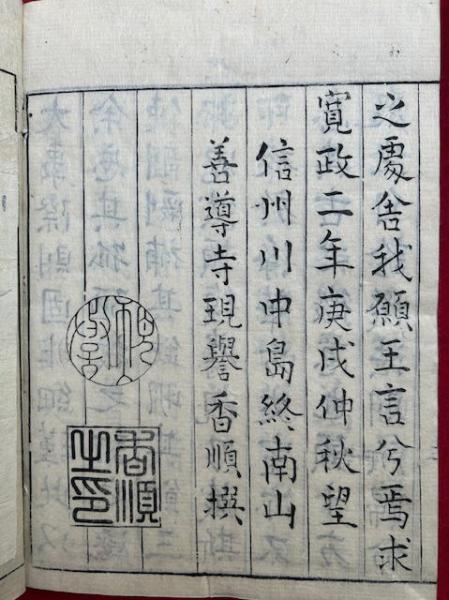 之處舍我願王言兮焉求
寛政二年庚戌仲秋望
信州川中島終南山
善導寺現譽香順撰
香順之印